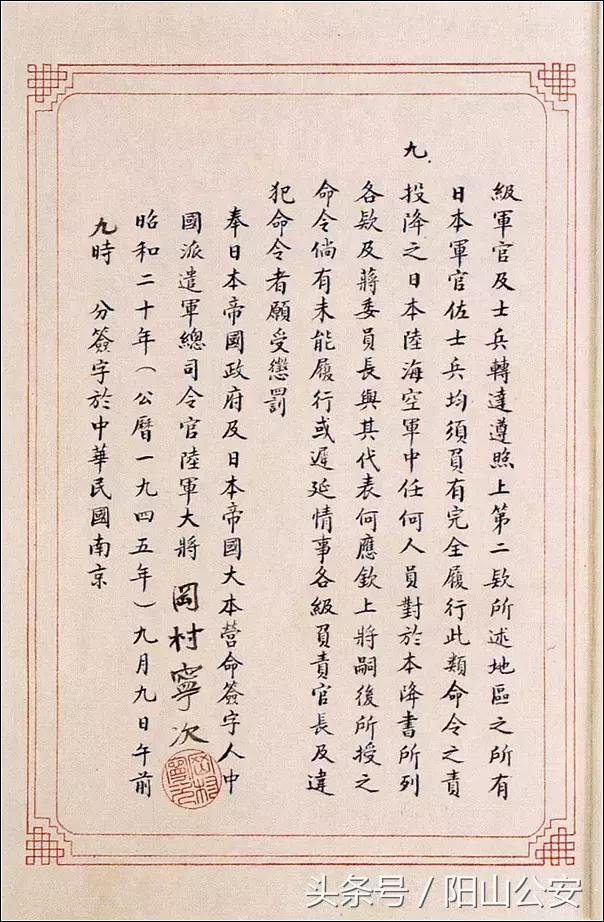 級軍官及士兵轉達遵照上第二款所述地區之所有
日本軍官佐士兵均須負有完全履行此類命令之責
九.投降之日本陸海空軍中任何人員對於本降書所列
各款及蔣委員長與其代表何應欽上將嗣後所授之
命令倘有未能履行或遲延情事各級負責官長及違
犯命令者願受懲罰
奉日本帝國政府及日本帝國大本營命簽字人中
國派遣軍總司令官陸軍大將 岡村寧次
昭和二十年(公曆一九四五年)九月九日午前
九時 分簽字於中華民國南京
头条号 / 阳山公安